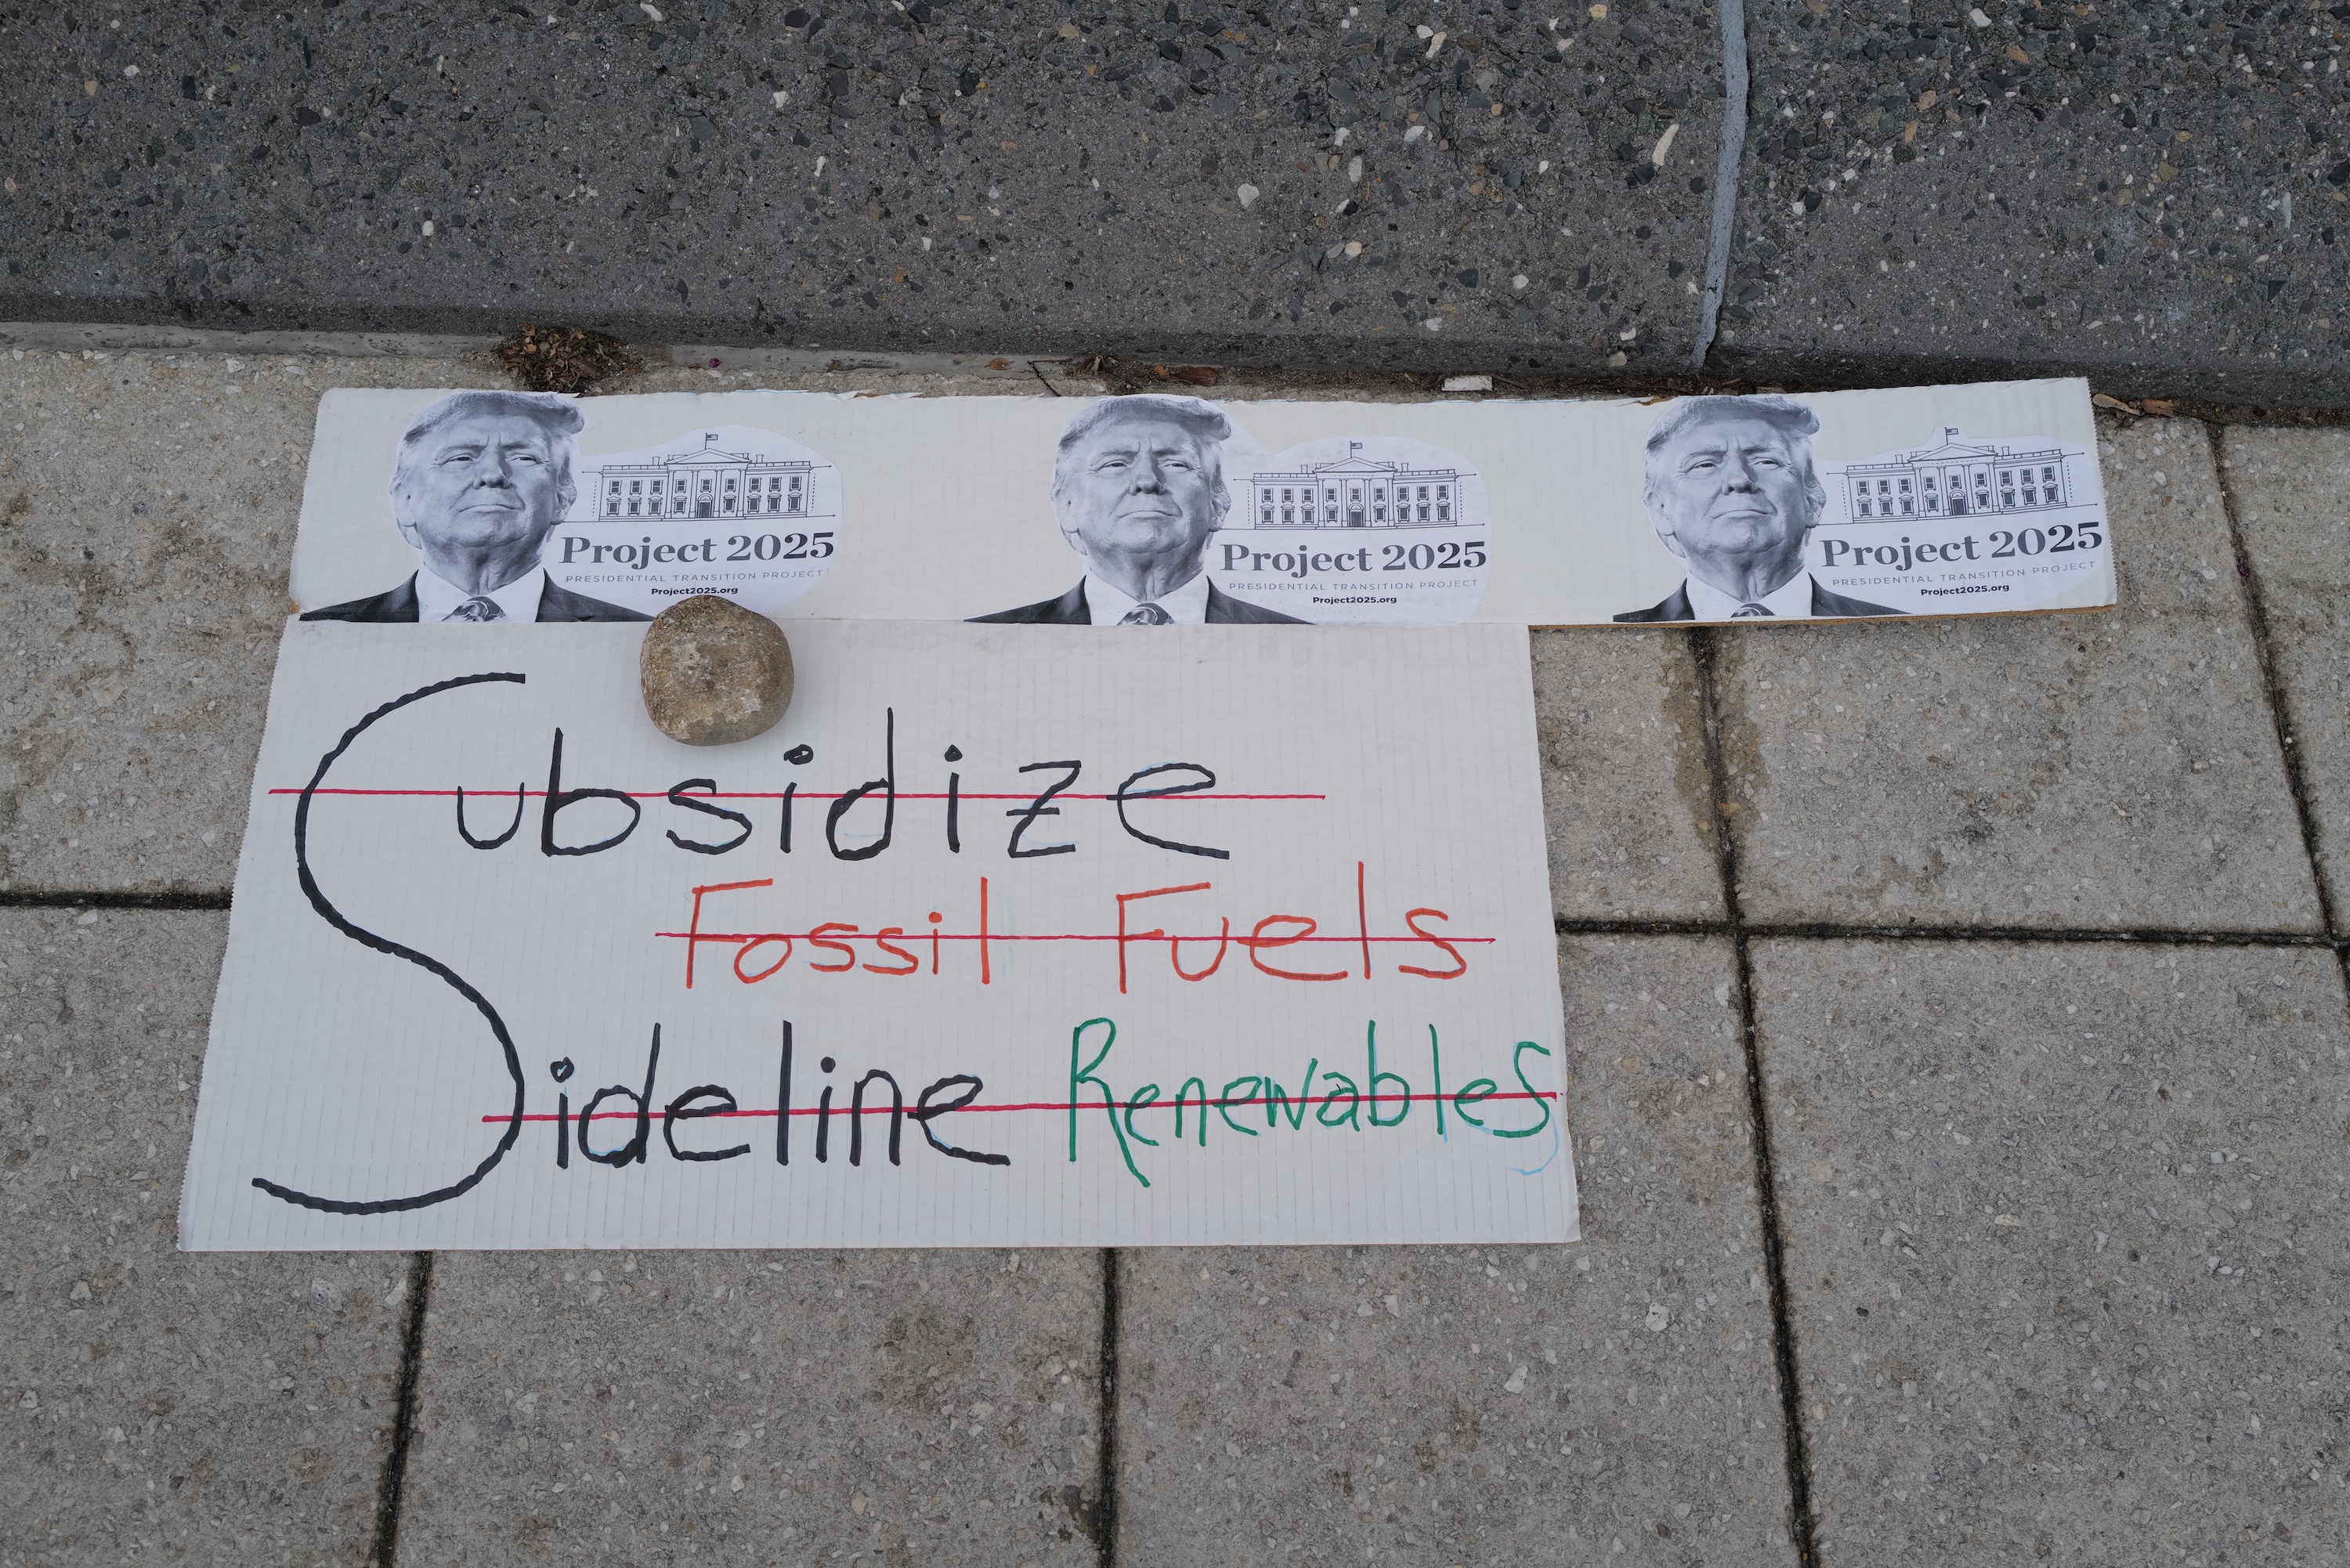 Project 2025
PRESIDENTIAL TRANSITION PROJECT
Project2025.org
Project 2025
PRESIDENTIAL TRANSITION PROJECT
Project2025.org
Project 2025
PRESIDENTIAL TRANSITION PROJECT
Project2025.org
Subsidize
Fossil Fuels
Sideline Renewables